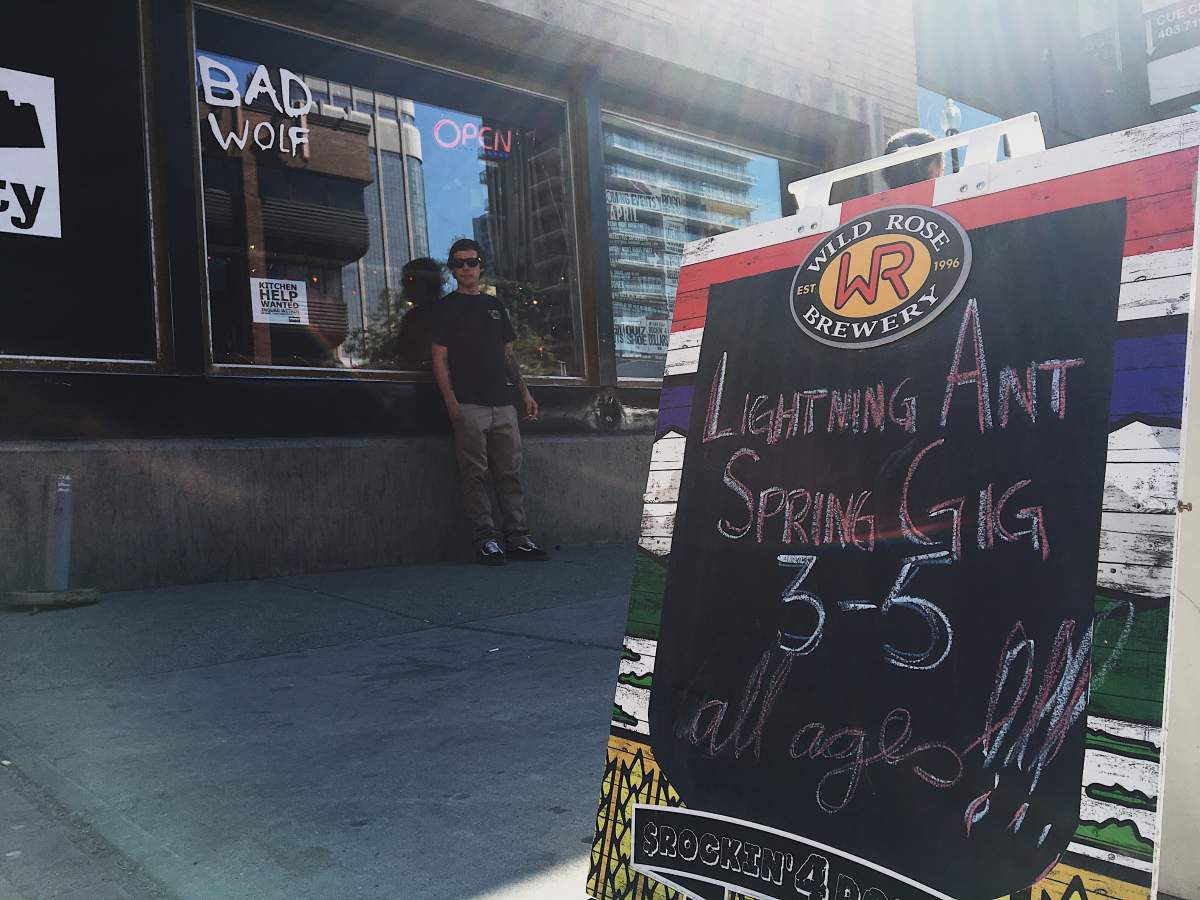 ty
BAD
WOLF
OPEN
KITCHEN
HELP
WANTED
EVENTS
APRIL
QUIZ
403.7
WILD ROSE
WR
EST 1996
BREWERY
LIGHTNING ANT
SPRING GIG
3-5
all ages!!!
$ROCKIN'4